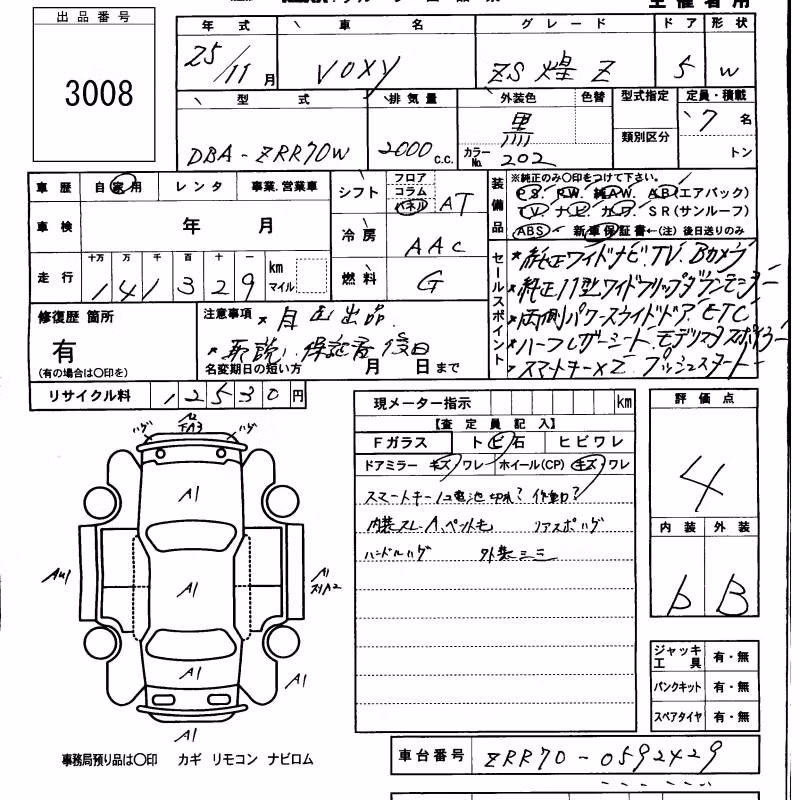 出品番号
3008
主催者用
年式 車名 グレード ドア 形状
25/11月 VOXY ZS 煌 Z 5 W
型式 排気量 外装色 色替 型式指定 定員・積載
DBA-ZRR70W 2000c.c. 黒 7名
カラーNo. 202 類別区分 トン
車歴 自家用 レンタ 事業.営業車
車検 年 月
走行 十万 万 千 百 十 一 km マイル
141329
シフト フロア コラム パネル AT
冷房 AAC
燃料 G
装備品
※純正のみ〇印をつけて下さい。
P.S. P.W. 純AW. AB(エアバック)
TV ナビ カワ SR(サンルーフ)
ABS 新車保証書←(注)後日送りのみ
セールスポイント
*純正ワイドナビ.TV.Bカメラ
*純正11型ワイドフリップダウンモニター
*両側パワースライドドア.ETC
*ハーフレザーシート.モデリスタスポイラー
*スマートキー×2 プッシュスタート
修復歴 箇所
有
(有の場合は〇印を)
注意事項 *自社出品.
*取説.保証書後日
名変期日の短い方 月 日まで
リサイクル料 12530円
現メーター指示 km
【査定員記入】
Fガラス トビ石 ヒビワレ
ドアミラー キズ ワレ ホイール(CP) キズ ワレ
スマートキー1コ電池切れ? 作動?
内装スレ・A、ペット毛 リアスポハゲ
ハンドルハゲ 外装ミミ
評価点
4
内装 外装
b B
ハゲ ハゲ
A1
A1
A1
AU1
A1
A2
A1
A1
ジャッキ工具 有・無
パンクキット 有・無
スペアタイヤ 有・無
車台番号 ZRR70-0592429
事務局預り品は〇印 カギ リモコン ナビロム